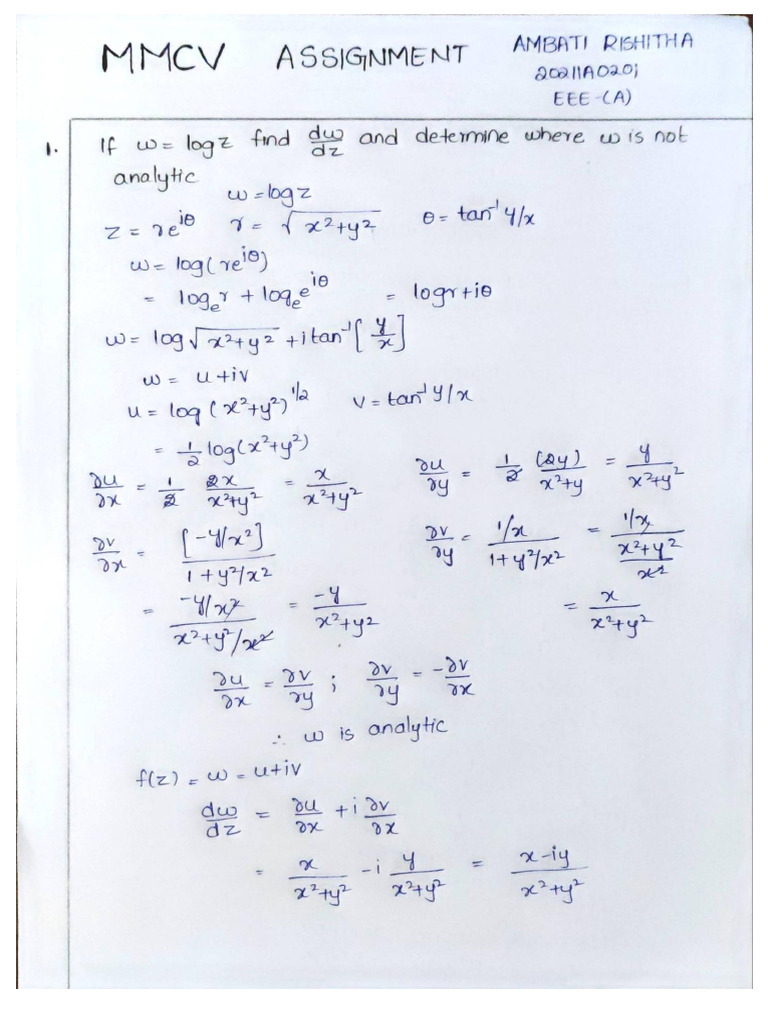 MMCV ASSIGNMENT AMBATI RISHITHA
20211A0201
EEE-(A)
1. If ω = logz find dω/dz and determine where ω is not
analytic
ω = logz
z = re^iθ r = √x²+y² θ = tan⁻¹ y/x
ω = log(re^iθ)
= logₑr + logₑe^iθ = logr + iθ
ω = log√x²+y² + i tan⁻¹[y/x]
ω = u + iv
u = log(x²+y²)^1/2 v = tan⁻¹ y/x
= 1/2 log(x²+y²)
∂u/∂x = 1/2 2x/x²+y² = x/x²+y² ∂u/∂y = 1/2 (2y)/x²+y = y/x²+y²
∂v/∂x = [-y/x²]/1+y²/x² ∂v/∂y = 1/x/1+y²/x² = 1/x/x²+y²/x²
= -y/x²/x²+y²/x² = -y/x²+y² = x/x²+y²
∂u/∂x = ∂v/∂y ; ∂v/∂y = -∂v/∂x
∴ ω is analytic
f(z) = ω = u+iv
dω/dz = ∂u/∂x + i ∂v/∂x
= x/x²+y² - i y/x²+y² = x-iy/x²+y²